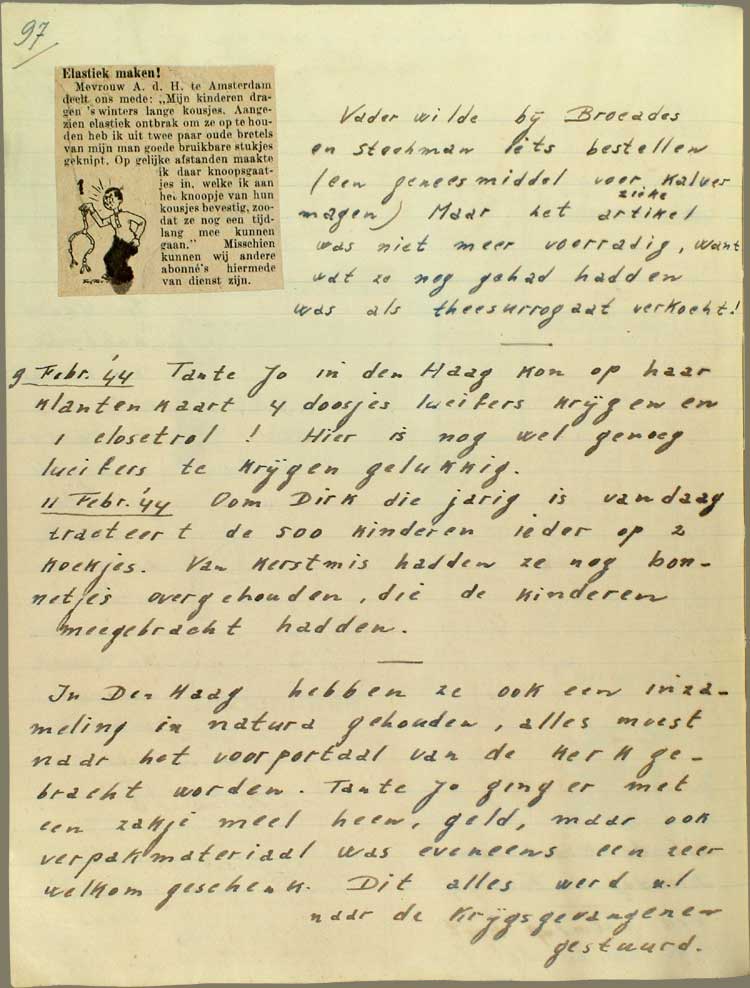 97
Elastiek maken!
Mevrouw A. d. H. te Amsterdam
deelt ons mede: „Mijn kinderen dra-
gen 's winters lange kousjes. Aange-
zien elastiek ontbrak om ze op te hou-
den heb ik uit twee paar oude bretels
van mijn man goede bruikbare stukjes
geknipt. Op gelijke afstanden maakte
ik daar knoopsgaat-
jes in, welke ik aan
het knoopje van hun
kousjes bevestig, zoo-
dat ze nog een tijd-
lang mee kunnen
gaan.” Misschien
kunnen wij andere
abonné's hiermede
van dienst zijn.
Vader wilde bij Brocades
en steehman iets bestellen
(een geneesmiddel voor kalver
zieke
magen) Maar het artikel
was niet meer voorradig, want
wat ze nog gehad hadden
was als theesurrogaat verkocht!
9 Febr. '44 Tante Jo in den Haag kon op haar
klantenkaart 4 doosjes lucifers krijgen en
1 closetrol! Hier is nog wel genoeg
lucifers te krijgen gelukkig.
11 Febr. '44 Oom Dirk die jarig is vandaag
tracteert de 500 kinderen ieder op 2
koekjes. Van kerstmis hadden ze nog bon-
netjes overgehouden, die de kinderen
meegebracht hadden.
In Den Haag hebben ze ook een inza-
meling in natura gehouden, alles moest
naar het voorportaal van de kerk ge-
bracht worden. Tante Jo ging er met
een zakje meel heen, geld, maar ook
verpakmateriaal was eveneens een zeer
welkom geschenk. Dit alles werd n.l
naar de Krijgsgevangenen
gestuurd.